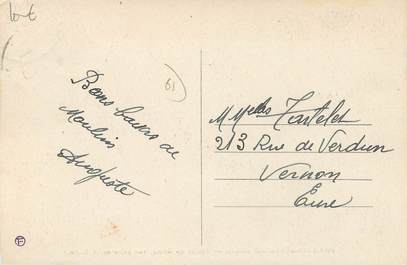 Bons baisers de
Moulins
Auguste
61
M Melles Tartelet
213 Rue de Verdun
Vernon
Eure